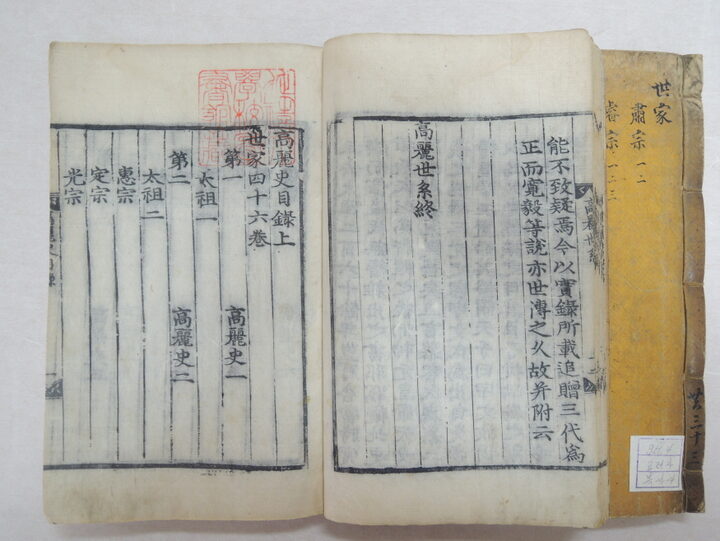 能不致疑焉今以實錄所載追贈三代為
正而寬毅等說亦世傳之久故并附云
高麗世系終
高麗史目錄上
世家四十六卷
第一 高麗史一
太祖一
第二 高麗史二
太祖二
惠宗
定宗
光宗
世家
肅宗 一 二
睿宗 一 二 三
高麗世系
共三十三